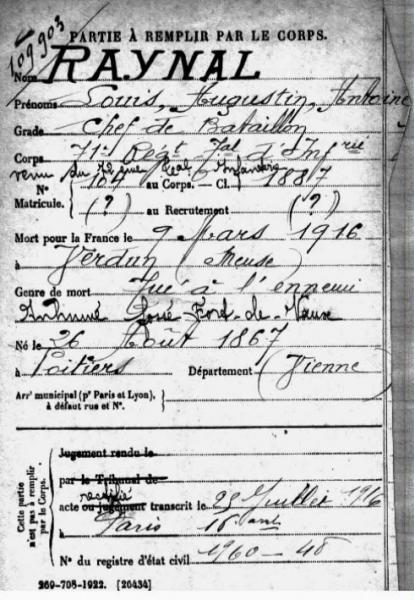 109903
PARTIE À REMPLIR PAR LE CORPS.
Nom RAYNAL
Prénoms Louis, Augustin, Antoine
Grade Chef de Bataillon
Corps 71e Régt Tal d'Infrie
venu du Infanterie
N° 107 au Corps. — Cl. 1887
Matricule. (?) au Recrutement (?)
Mort pour la France le 9 Mars 1916
à Verdun (Meuse)
Genre de mort Tué à l'ennemi
Inhumé Fossé Fort-de-Vaux
Né le 26 Août 1867
à Poitiers Département (Vienne)
Arrt municipal (pr Paris et Lyon),
à défaut rue et N°.
Cette partie
n'est pas à remplir
par le Corps.
Jugement rendu le
par le Tribunal de
rectifié
acte ou jugement transcrit le 29 Juillet 1916
à Paris 16e arrt
N° du registre d'état civil 1960-48
269-708-1922. [26434]